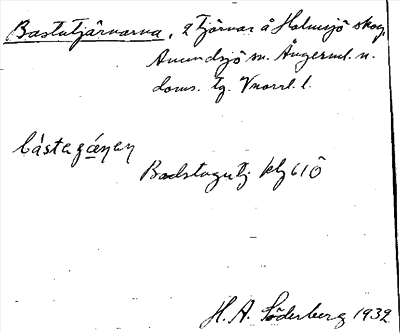 Bastutjärnarna, 2 tjärnar å Holmsjö skog,
Anundsjö sn. Ångerml. n.
doms. tg. Vnorrl. l.
bástagáɳaɳ
Badstagutj klg 61Ö
H. A. Söderberg 1932